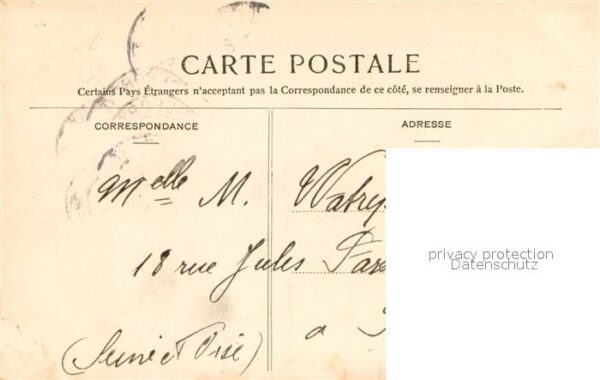 CARTE POSTALE
Certains Pays Étrangers n'acceptant pas la Correspondance de ce côté, se renseigner à la Poste.
CORRESPONDANCE
ADRESSE
Melle M. Watry
18 rue Jules
a
(Seine et Oise)
privacy protection
Datenschutz